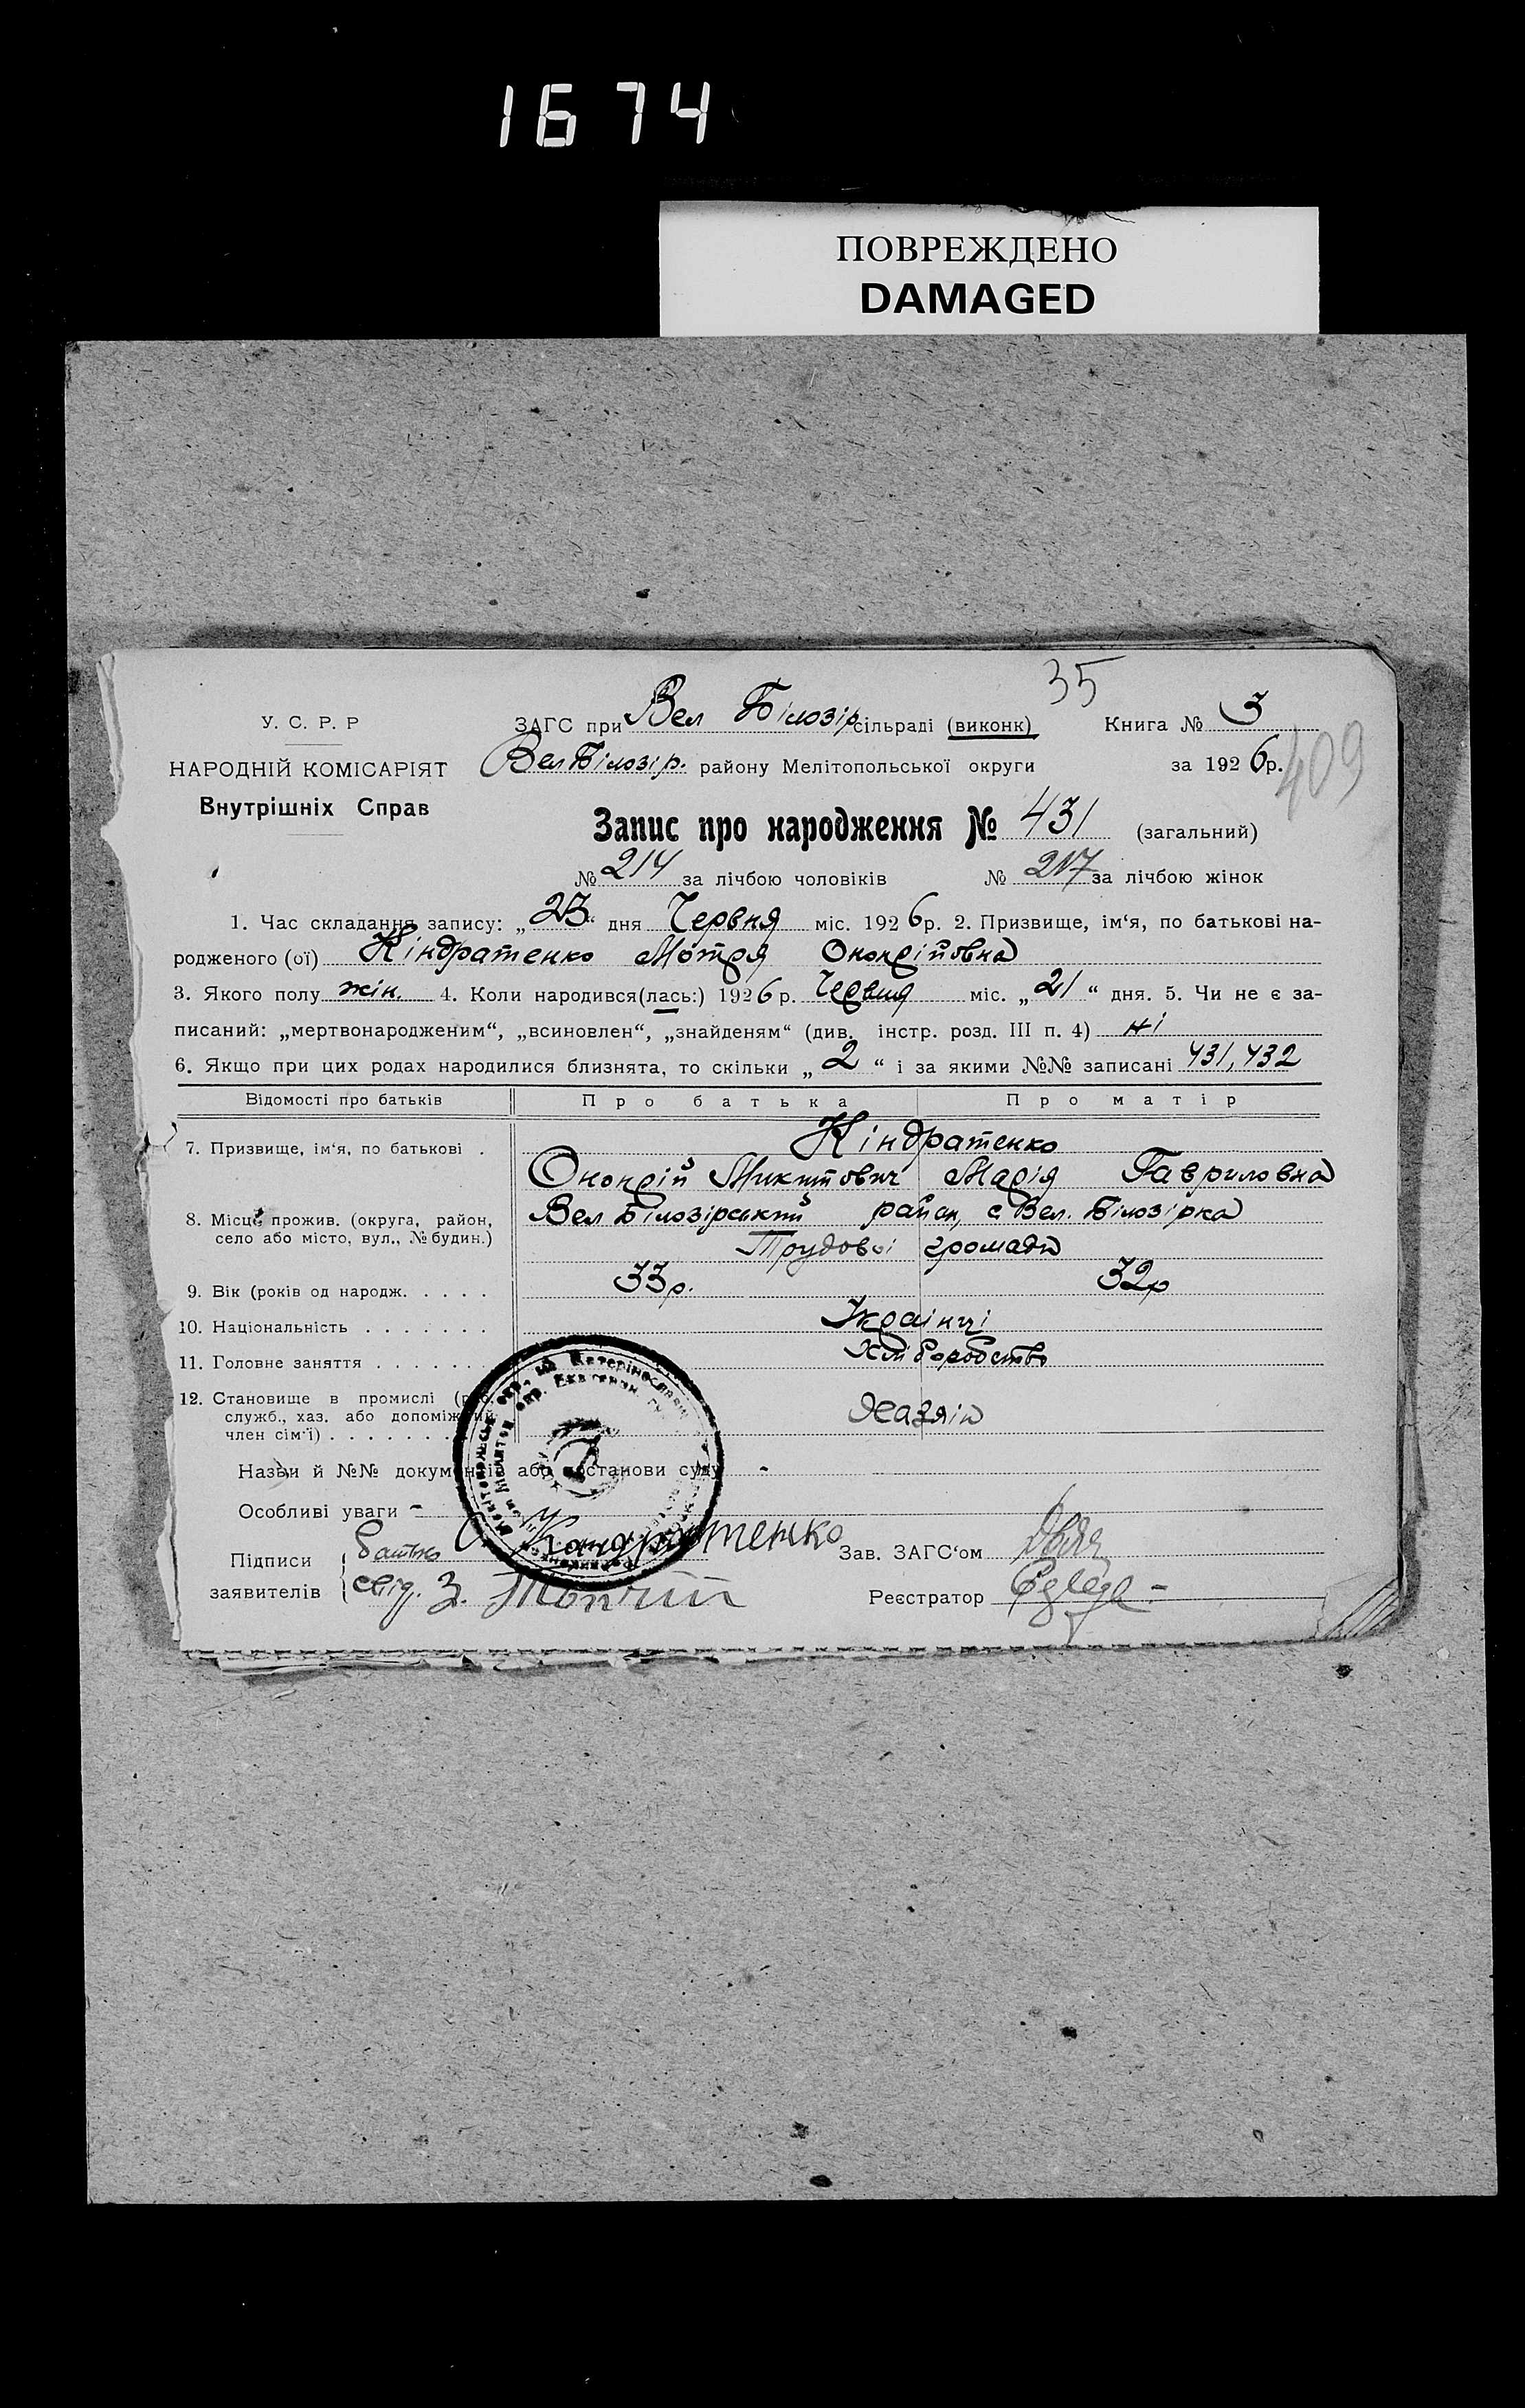 1674
ПОВРЕЖДЕНО
DAMAGED
35
У. С. Р. Р
ЗАГС при Вел Білозір сільраді (виконк)
Книга № 3
НАРОДНІЙ КОМІСАРІЯТ
Вел Білозір. району Мелітопольської округи
за 1926р.
409
Внутрішніх Справ
Запис про народження № 431 (загальний)
№ 214 за лічбою чоловіків № 217 за лічбою жінок
1. Час складання запису: „23“ дня Червня міс. 1926р. 2. Призвище, ім‘я, по батькові на-
родженого (ої) Кіндратенко Мотря Онопрійовна
3. Якого полу жін. 4. Коли народився(лась:) 1926р. Червня міс. „21“ дня. 5. Чи не є за-
писаний: „мертвонародженим“, „всиновлен“, „знайденям“ (див. інстр. розд. III п. 4) ні
6. Якщо при цих родах народилися близнята, то скільки „2“ і за якими №№ записані 431, 432
Відомості про батьків Про батька Про матір
Кіндратенко
7. Призвище, ім‘я, по батькові .
Онопрій Микитович Марія Гавриловна
8. Місце прожив. (округа, район,
село або місто, вул., № будин.)
Вел Білозірський район, с Вел. Білозірка
Трудової громади
9. Вік (років од народж. . . . . 33р. 32р
10. Національність . . . . . . . Українці
11. Головне заняття . . . . . . Хліборобство
12. Становище в промислі
служб., хаз. або допоміжний
член сім‘ї) . . . . . . . Хазяін
Назви й №№ документів або постанови суду -
Особливі уваги -
Підписи
заявителів
батько Кондратенко
свід. З.
Зав. ЗАГС‘ом
Реєстратор